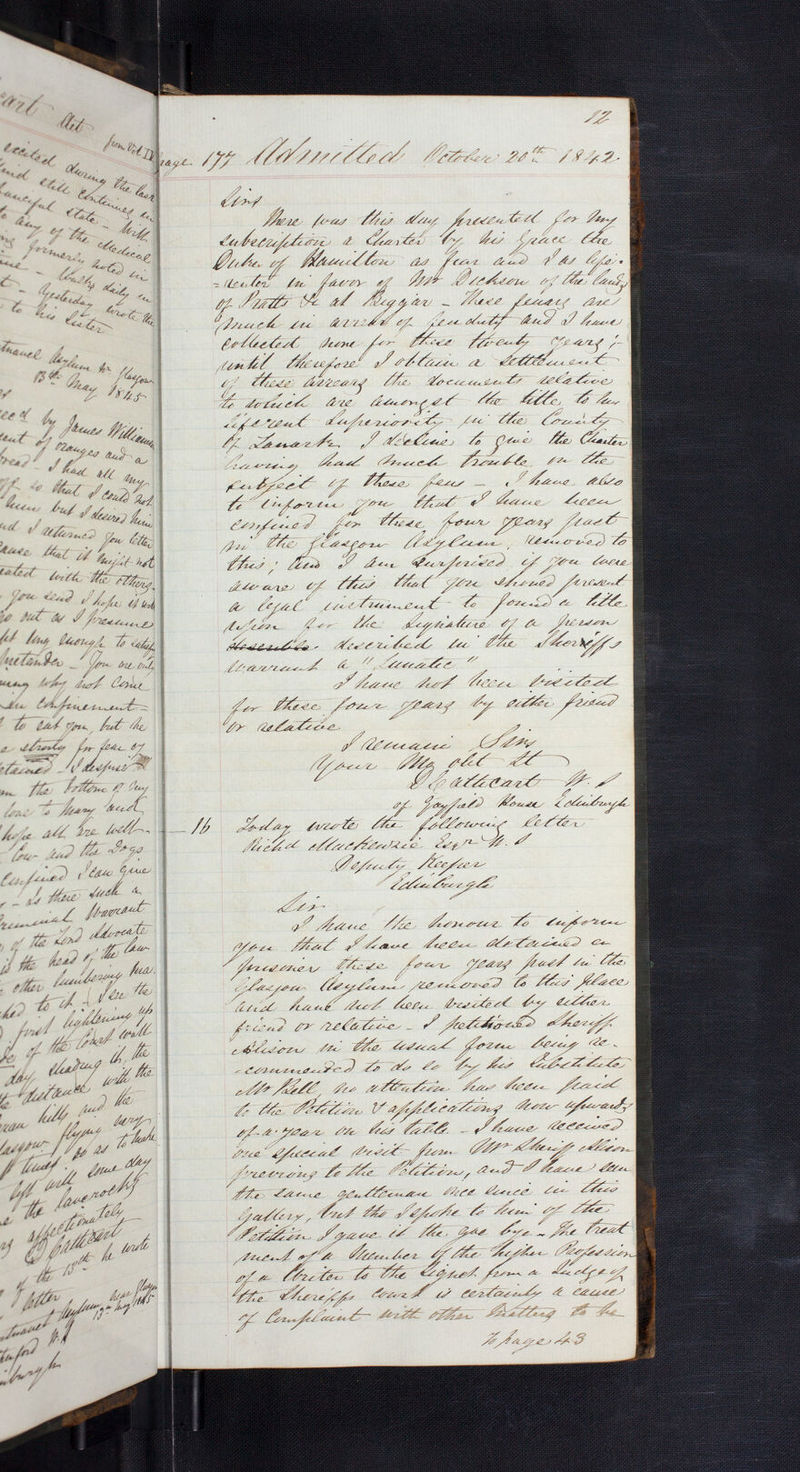 eart Aet from Vol II
excited during the last
and still continues in
fanciful state - Writ
to any of the Medical
formerly noted in
- Yesterday wrote the
to his Sister
Asylum Nr Glasgow
13th May 1845
recd by James Williams
of oranges and a
bread - I had all my
off so that I could not
him but I desired him
and I returned you letter
cause that it might not
with the others.
you send I hope it will
go out as I presume
long enough to satisfy
Pretender - You are
why not come
in confinement
to eat you, but he
strong for fear of
detained - I despise
from the bottom of my
love to Mary and
hope all are well
Cow and the Dogs
confined I can give
- is there such a
Criminal Warrant
of the Lord Advocate
is the head of the law
other lumbering
to it - I see the
first lightening up
of the Court wall
day shading it, the
distance with the
hills and the
Glasgow flying very
times so as to make
left will some day
the laverocks
affectionately
D Cathcart
of the 13th he wrote
letter
Asylum near Glasgow
13th May 1845
W.S
Edinburgh
12
page 177 Admitted October 20th 1842
Sirs
There was this day presented for my
subscription a Charter by his Grace the
Duke of Hamilton as fiar and I as life-
=renter in favor of Mr Dickson of the lands
of Pratts &c at Biggar - These feuars are
much in arrear of feu duty and I have
collected none for these twenty years ;-
until therefore I obtain a settlement
of these arrears the documents relative
to which are amongst the title to his
liferent Superiority in the County
of Lanark I decline to give the Charter
having had much trouble on the
subject of these feus - I have also
to inform you that I have been
confined for these four years past
in the Glasgow Asylum, removed to
this; and I am surprised if you were
aware of this that you should present
a legal instrument to found a title
upon for the signature of a person
described in the Sheriffs
warrant a "Lunatic"
I have not been visited
for these four years by either friend
or relative
I remain Sirs
Your Mo obt St
D Cathcart W. S
of Gayfield House Edinburgh
16 Today wrote the following letter
Richd Mackenzie Esqr W. S
Deputy Keeper
Edinburgh
Sir
I have the honour to inform
you that I have been detained a
prisoner these four years past in the
Glasgow Asylum removed to this place
and have not been visited by either
friend or relative - I petitioned Sheriff
Alison in the usual form being re-
-commended to do so by his Substitute
Mr Bell no attention has been paid
to the Petition & applications now upwards
of a year on his table - I have received
one special visit from Mr Sheriff Alison
previous to the Petition, and I have seen
the same gentleman once since in this
Gallery, but tho I spoke to him of the
Petition I gave it the gae bye - The treat
ment of a Member of the higher Profession
of a Writer to the Signet from a Judge of
the Sheriffs court is certainly a cause
of Complaint with other matters to be
To page 43